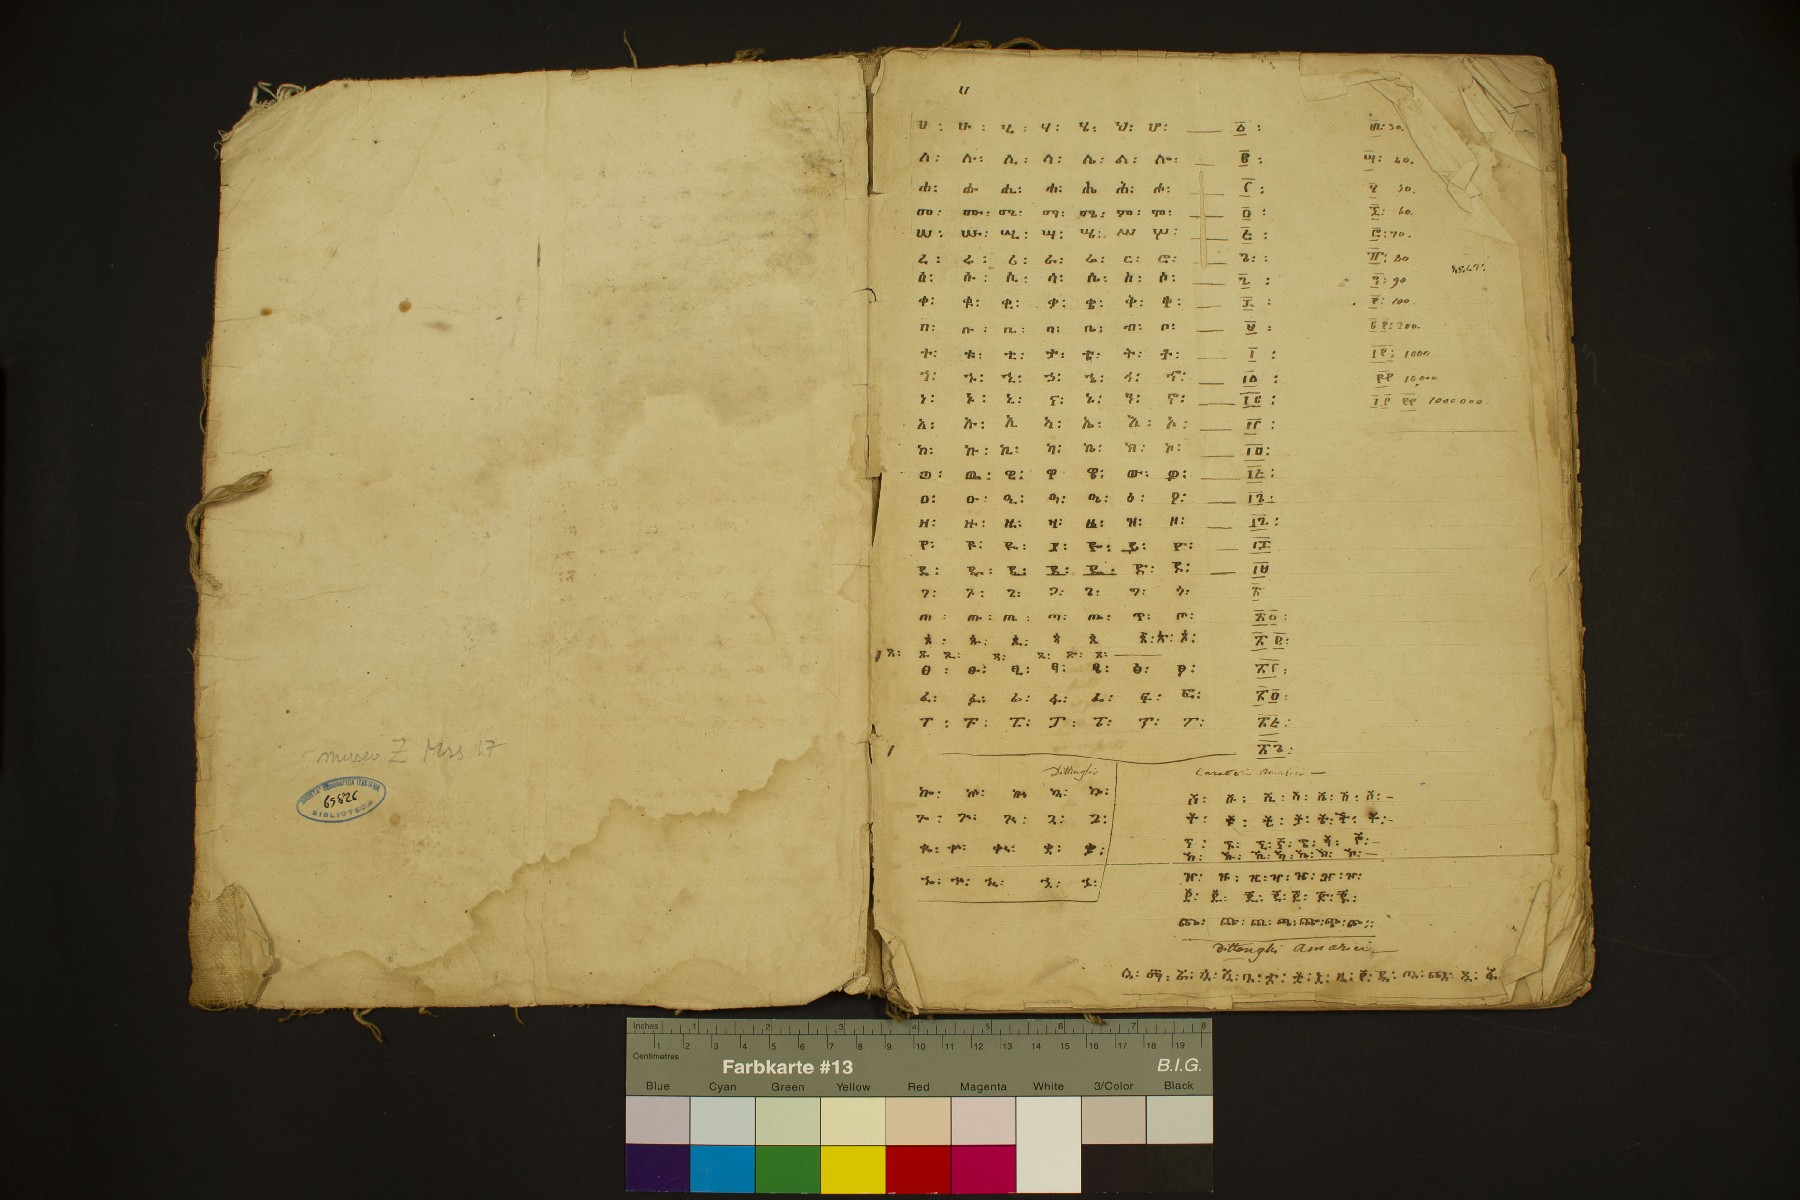 museo Z Mss 17
SOCIETA GEOGRAFICA ITALIANA
65826
BIBLIOTECA
ሀ
ሀ: ሁ: ሂ: ሃ: ሄ: ህ: ሆ: — ፩: ፴: 30.
ለ: ሉ: ሊ: ላ: ሌ: ል: ሎ: — ፪: ፵: 40.
ሐ: ሑ: ሒ: ሓ: ሔ: ሕ: ሖ: — ፫: ፶ 50.
መ: ሙ: ሚ: ማ: ሜ: ም: ሞ: — ፬: ፷: 60.
ሠ: ሡ: ሢ: ሣ: ሤ: ሥ: ሦ: — ፭: ፸: 70.
ረ: ሩ: ሪ: ራ: ሬ: ር: ሮ: — ፮: ፹: 80
ሰ: ሱ: ሲ: ሳ: ሴ: ስ: ሶ: — ፯: ፺: 90
ቀ: ቁ: ቂ: ቃ: ቄ: ቅ: ቆ: — ፰: ፻: 100.
በ: ቡ: ቢ: ባ: ቤ: ብ: ቦ: — ፱: ፪፻: 200.
ተ: ቱ: ቲ: ታ: ቴ: ት: ቶ: — ፲: ፲፻: 1000
ኀ: ኁ: ኂ: ኃ: ኄ: ኅ: ኆ: — ፲፩: ፻፻ 10,000
ነ: ኑ: ኒ: ና: ኔ: ን: ኖ: — ፲፪: ፲፻ ፻፻ 1000000
አ: ኡ: ኢ ኣ: ኤ: እ: ኦ: — ፲፫:
ከ: ኩ: ኪ: ካ: ኬ: ክ: ኮ: — ፲፬:
ወ: ዉ: ዊ: ዋ ዌ: ው: ዎ: — ፲፭:
ዐ: ዑ: ዒ: ዓ: ዔ: ዕ: ዖ: — ፲፮:
ዘ: ዙ: ዚ: ዛ: ዜ: ዝ: ዞ: — ፲፯:
የ: ዩ: ዪ: ያ: ዬ: ይ: ዮ: — ፲፰
ደ: ዱ: ዲ: ዳ: ዴ: ድ: ዶ: — ፲፱
ገ: ጉ: ጊ: ጋ: ጌ: ግ: ጎ: ፳
ጠ: ጡ: ጢ: ጣ: ጤ: ጥ: ጦ: ፳፩:
ጰ: ጱ: ጲ: ጳ ጴ ጵ: ጶ: ፳፪:
ጸ: ጹ: ጺ: ጻ: ጼ: ጽ: ጾ: —
ፀ: ፁ: ፂ: ፃ: ፄ: ፅ: ፆ: ፳፫:
ፈ: ፉ: ፊ: ፋ: ፌ: ፍ: ፎ: ፳፬:
ፐ: ፑ: ፒ: ፓ: ፔ: ፕ: ፖ: ፳፭:
፳፮:
Dittonghi
ኰ: ኵ: ኲ ኳ: ኴ:
ጐ: ጕ: ጒ: ጓ: ጔ:
ቈ: ቍ: ቊ: ቋ: ቌ:
ኈ: ኍ: ኊ: ኋ: ኌ:
Caratteri Amarici —
ሸ: ሹ: ሺ: ሻ: ሼ: ሽ: ሾ: —
ቸ: ቹ: ቺ: ቻ: ቼ: ች: ቾ: —
ኘ: ኙ: ኚ: ኛ: ኜ: ኝ: ኞ: —
ኸ: ኹ: ኺ: ኻ: ኼ: ኽ: ኾ: —
ዠ: ዡ: ዢ: ዣ: ዤ: ዥ: ዦ:
ጀ: ጁ: ጂ: ጃ: ጄ: ጅ: ጆ:
ጨ: ጩ: ጪ: ጫ: ጬ: ጭ: ጮ:
Dittonghi Amarici —
ሏ: ሟ: ሯ: ሷ: ሿ: ቧ: ቷ: ቿ: ኗ: ዟ: ዧ: ዷ: ጧ: ጯ: ጿ: ፏ
Inches 1 2 3 4 5 6 7 8
Centimetres 1 2 3 4 5 6 7 8 9 10 11 12 13 14 15 16 17 18 19
Farbkarte #13 B.I.G.
Blue Cyan Green Yellow Red Magenta White 3/Color Black